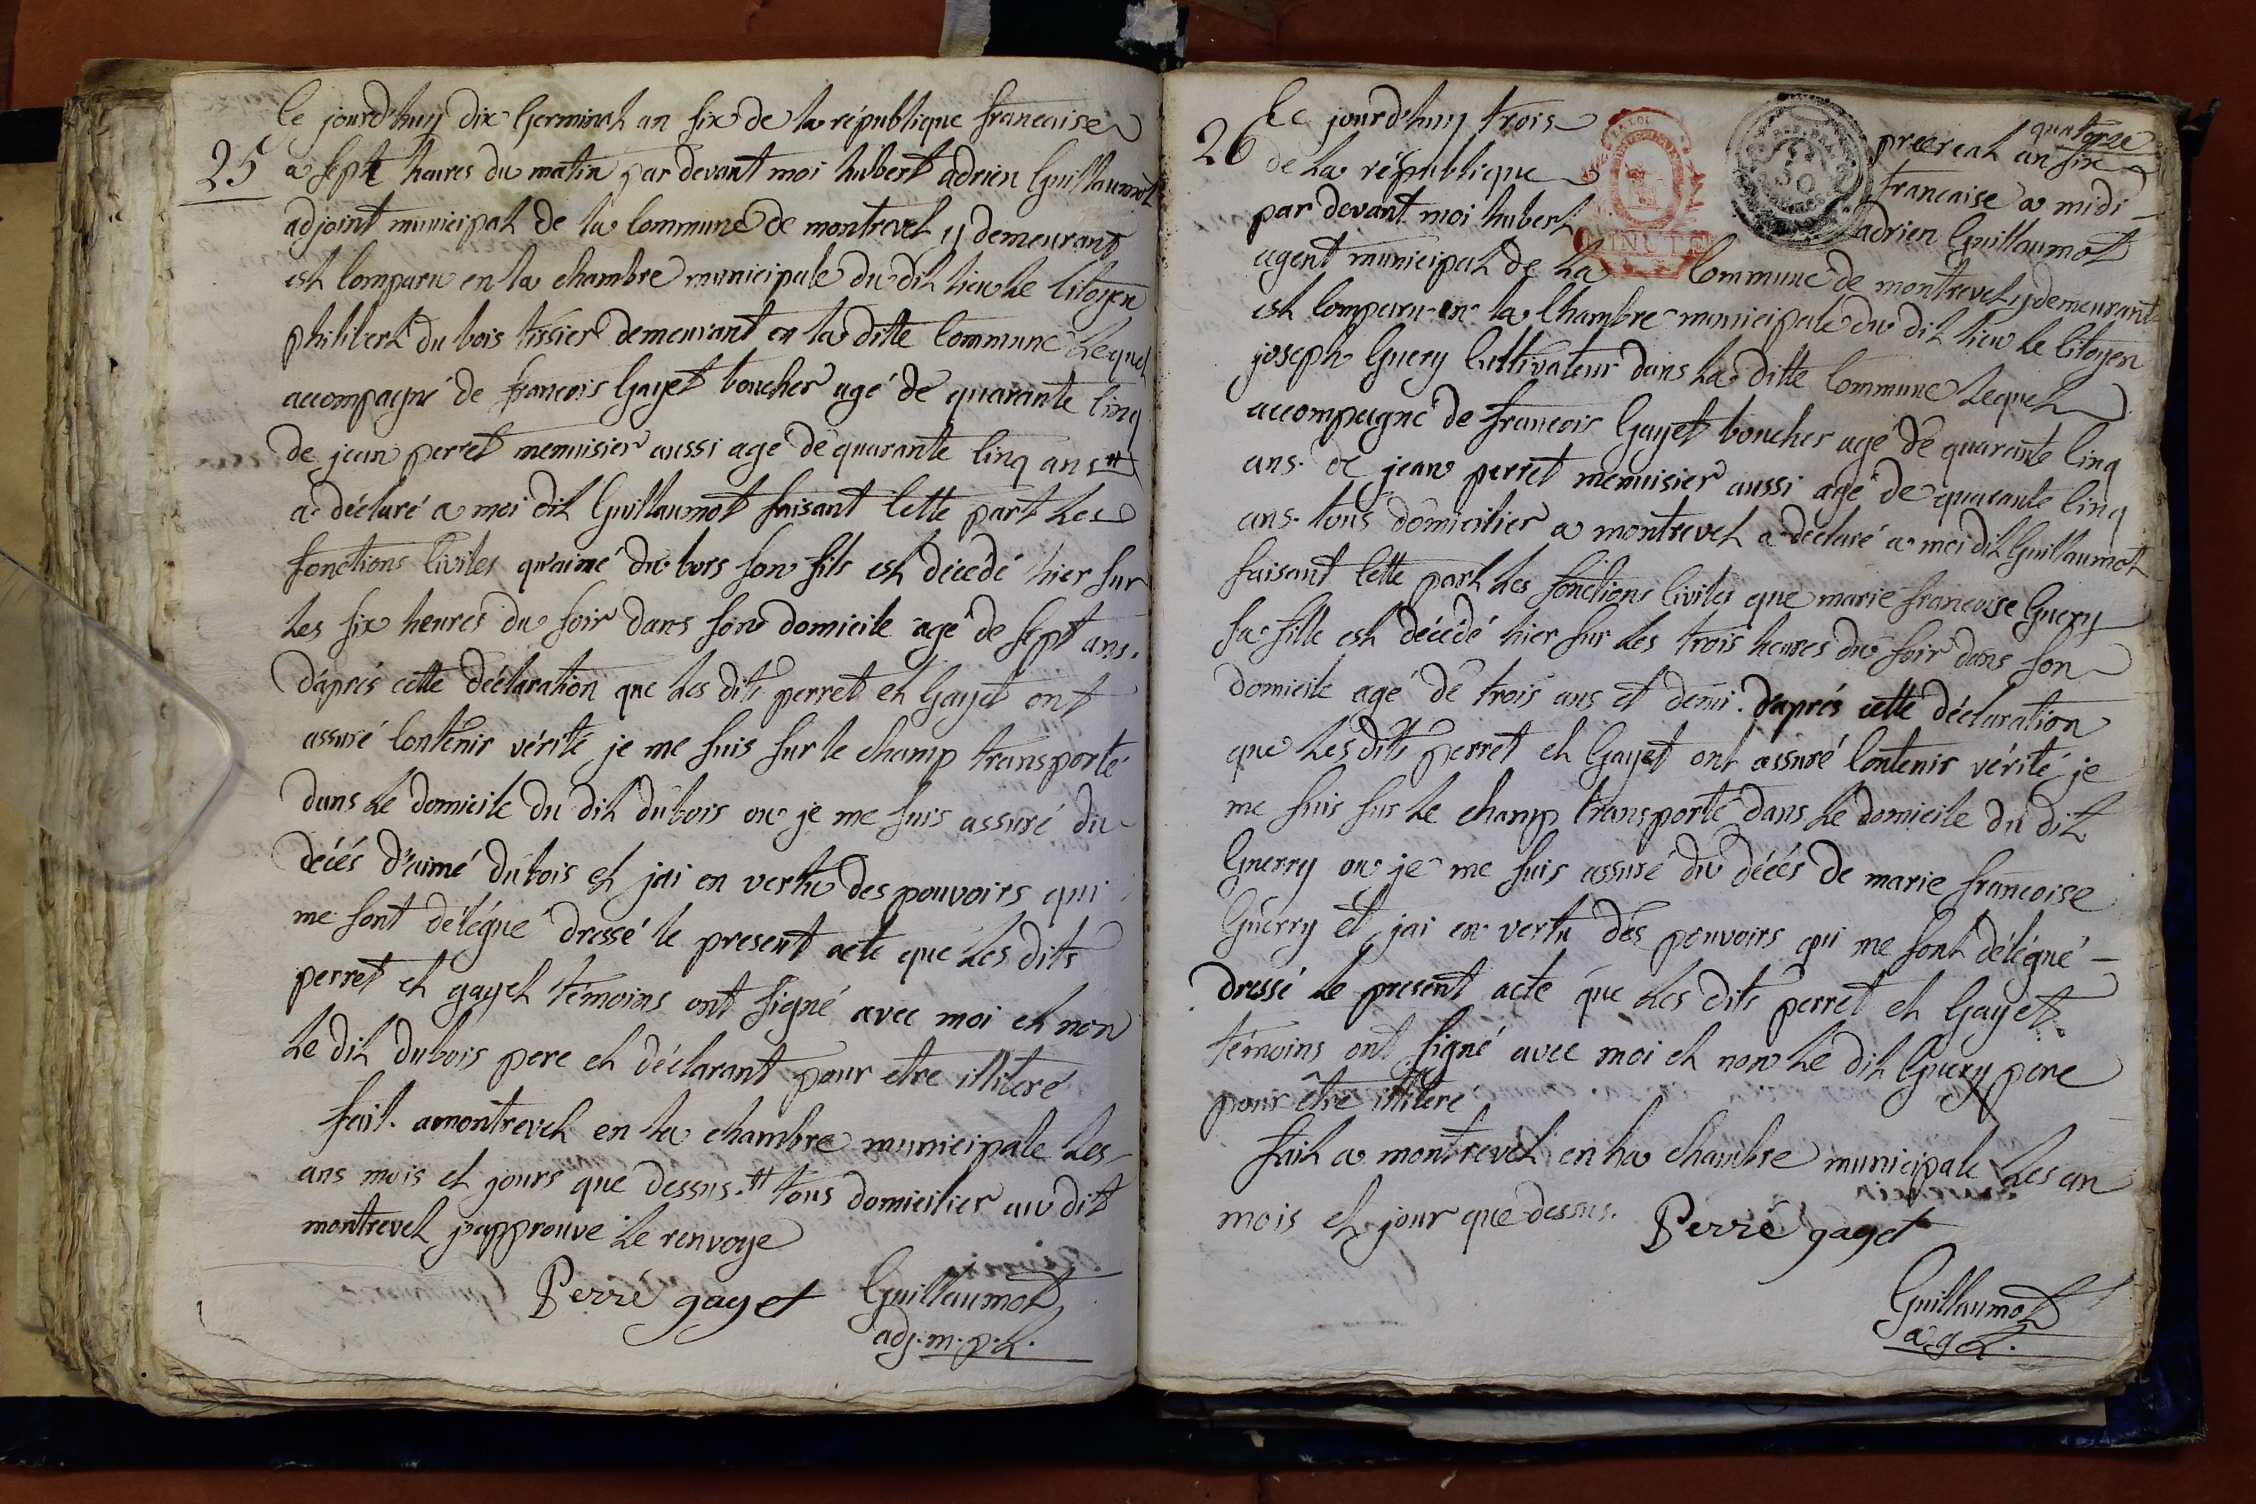 Ce jourd'huy dix Germinal an six de la république francaise
25
a sept heures du matin par devant moi hubert adrien Guillaumot
adjoint municipal de la Commune de montrevel y demeurant
est Comparu en la chambre municipale du dit lieu le Citoyen
philibert du bois tissier demeurant en la ditte Commune Lequel
accompagné de francois Gayet boucher agé de quarante Cinq
de jean perret menuisier aussi agé de quarante Cinq ans #
a déclaré a moi dit Guillaumot faisant Cette part Les
fonctions Civiles qu'aimé du bois son fils est décédé hier sur
Les six heures du soir dans son domicile agé de sept ans.
D'aprés cette déclaration que Les dits perret et Gayet ont
assuré Contenir vérité je me suis sur le champ transporté
dans Le domicile du dit dubois ou je me suis assuré du
décés d'aimé dubois et jai en vertu des pouvoirs qui
me sont délégué dressé le present acte que Les dits
perret et gayet témoins ont signé avec moi et non
Le dit dubois pere et déclarant pour etre illiteré
fait. amontrevel en La chambre municipale Les
ans mois et jours que dessus. # tous domicilier au dit
montrevel j'approuve Le renvoye
Perré gayet Guillaumot
adj. m. p. L.
quatorze
26
Ce jourd'huy trois preereal an six
de La république francaise a midi
par devant moi hubert adrien Guillaumot
agent municipal de La Commune de montrevel y demeurant
est Comparu en la Chambre municipale du dit lieu Le Citoyen
joseph Guery Cultivateur dans La ditte Commune Lequel
accompagné de francois Gayet boucher agé de quarante Cinq
ans. de jean perret menuisier aussi agé de quarante Cinq
ans. tous domicilier a montrevel a déclaré a moi dit Guillaumot
faisant Cette part Les fonctions Civiles que marie francoise Guery
sa fille est décédé hier sur Les trois heures du soir dans son
domicile agé de trois ans et demi. d'aprés cette déclaration
que Les dits perret et Gayet ont assuré Contenir vérité je
me suis sur Le champ transporté dans Le domicile du dit
Guerry ou je me suis assuré du décés de marie francoise
Guerry et jai en vertu des pouvoirs qui me sont délégué
dressé Le present acte que Les dits perret et Gayet
témoins ont signé avec moi et non Le dit Guery pere
pour être illiteré
fait a montrevel en La chambre municipale Les an
mois et jour que dessus. Perré gayet
Guillaumot
agt.
MINUTE
50